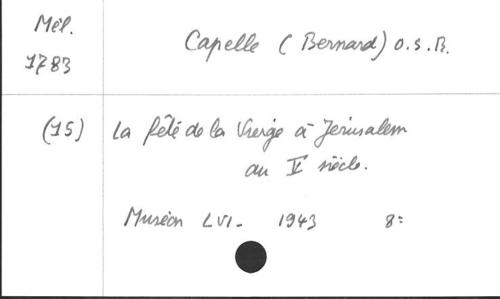 Mél.
1783
Capelle (Bernard) O.S.B.
(15) La fête de la Vierge à Jérusalem
au V siècle.
Muséon LVI. 1943 8=